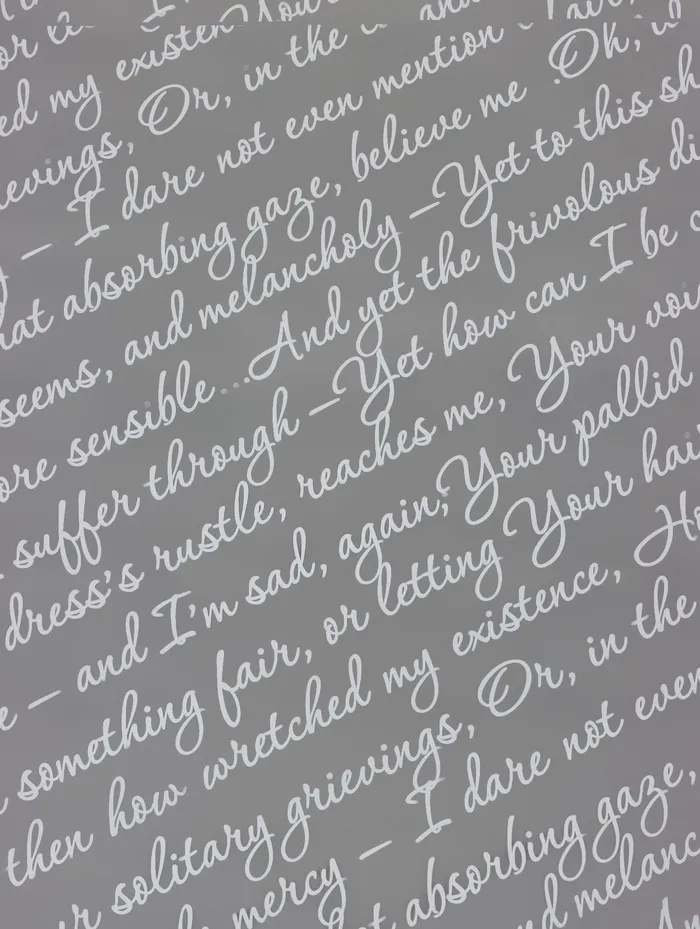 ed my existen
ievings, Or, in the
— I dare not even mention
hat absorbing gaze, believe me .Oh,
seems, and melancholy —Yet to this sh
ore sensible...And yet the frivolous di
suffer through —Yet how can I be c
dress's rustle, reaches me, Your voi
e — and I'm sad, again, Your pallid
something fair, or letting Your hai
then how wretched my existence, Ho
r solitary grievings, Or, in the
mercy — I dare not even
t absorbing gaze,
d melanc